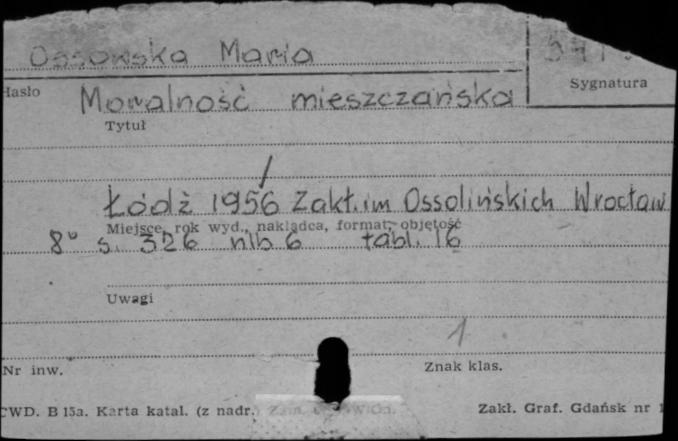 Ossowska Maria
Sygnatura
Hasło
Moralność mieszczańska
Tytuł
Łódź 1956 Zakł. im Ossolińskich Wrocław
Miejsce, rok wyd., nakładca, format, objętość
8° s. 326 nlb 6 tabl. 16
Uwagi
1
Nr inw.
Znak klas.
CWD. B 15a. Karta katal. (z nadr.
Zakł. Graf. Gdańsk nr 1